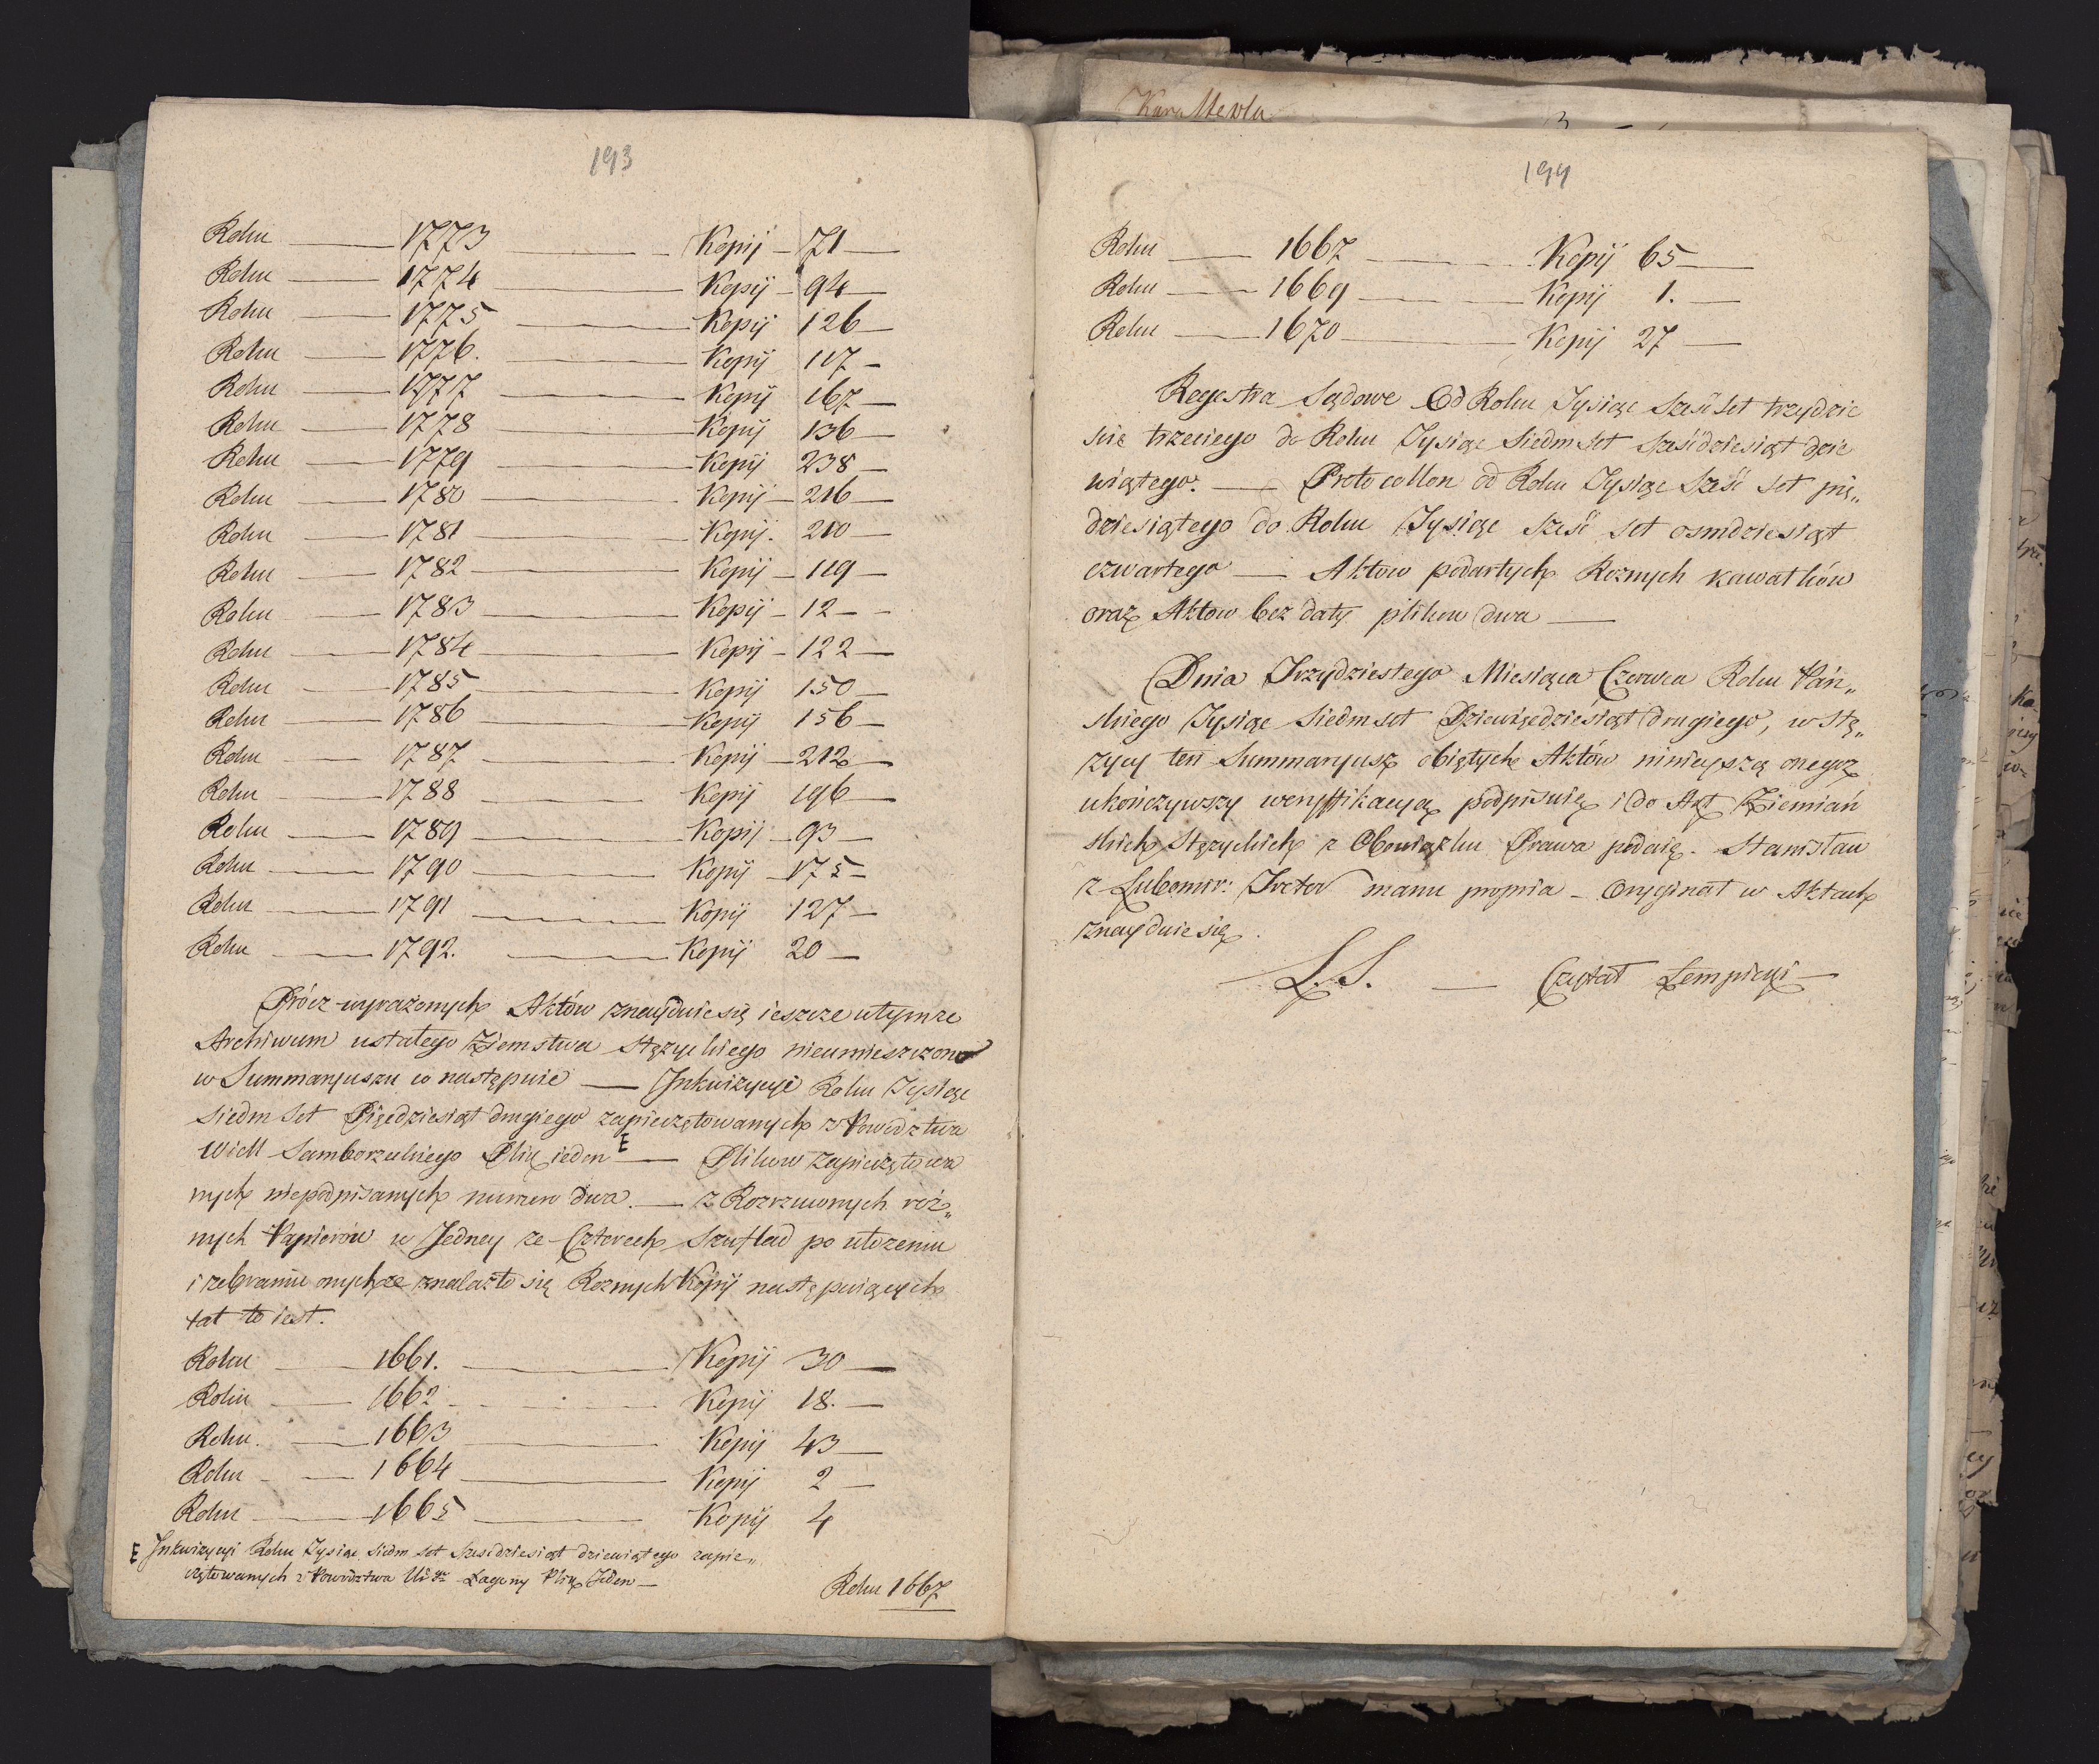 193
Roku — 1773 — Kopij — 71 —
Roku — 1774 — Kopij — 94 —
Roku — 1775 — Kopij 126 —
Roku — 1776. — Kopij 117 —
Roku — 1777 — Kopij 167 —
Roku — 1778 — Kopij 136 —
Roku — 1779 — Kopij 238 —
Roku — 1780 — Kopij — 216 —
Roku — 1781 — Kopij. 210 —
Roku — 1782 — Kopij — 119 —
Roku — 1783 — Kopij — 12 —
Roku — 1784 — Kopij — 122 —
Roku — 1785 — Kopij 150 —
Roku — 1786 — Kopij 156 —
Roku — 1787 — Kopij — 212 —
Roku — 1788 — Kopij 196 —
Roku — 1789 — Kopij — 93 —
Roku — 1790 — Kopij — 175 —
Roku — 1791 — Kopij 127 —
Roku — 1792. — Kopij 20 —
Prócz wyrażonych Aktów znayduie się ieszcze wtymże
Archiwum ustałego Ziemstwa Stężyckiego nieumieszczone
w Summaryuszu co następuie — Inkwizycyi Roku Tysiąc
siedm set Pięćdziesiąt drugiego zapieczętowanych z Powodztwa
Wiell Samborzeckiego Plik ieden E — Plikow zapieczętowa
nych niepodpisanych numero dwa. — z Rozrzuconych róż„
nych Papierów w Jedney ze Czterech Szuflad po ułożeniu
i zebraniu onychże znalazło się Roznych Kopij następuiących
lat to iest.
Roku — 1661. — Kopij 30 —
Roku — 1662 — Kopij 18. —
Roku. — 1663 — Kopij 43 —
Roku — 1664 — Kopij 2 —
Roku — 1665 — Kopij 4
E Inkwizycyi Roku Tysiąc siedm set sześćdziesiąt dziewiątego zapie„
czętowanych z Powodztwa Plik Jeden —
Roku 1667
Kara
194
Roku — 1667 — Kopij 65 —
Roku — 1669 — Kopij 1. —
Roku — 1670 — Kopij 27 —
Regestra Sądowe Od Roku Tysiąc sześć set trzydzie
ście trzeciego do Roku Tysiąc siedm set sześćdziesiąt dzie
wiątego. — Protocollon od Roku Tysiąc Sześć set pię„
dziesiątego do Roku Tysiąc sześć set osmdziesiąt
czwartego — Aktow podartych Roznych kawałków
oraz Aktow bez daty plikow dwa —
Dnia Trzydziestego Miesiąca Czerwca Roku Pań„
skiego Tysiąc siedm set Dziewięćdziesiąt drugiego, w Stę„
życy ten Summaryusz obiętych Aktów ninieyszą onegoż
ukończywszy weryffikacyą podpisuię i do Akt Ziemiań
skich Stężyckich z Obowiązku Prawa podaię. Stanisław
z Lubomir: Treter manu propria — Oryginał w Aktach
znayduie się.
L. S. — Czytał Lempicki —